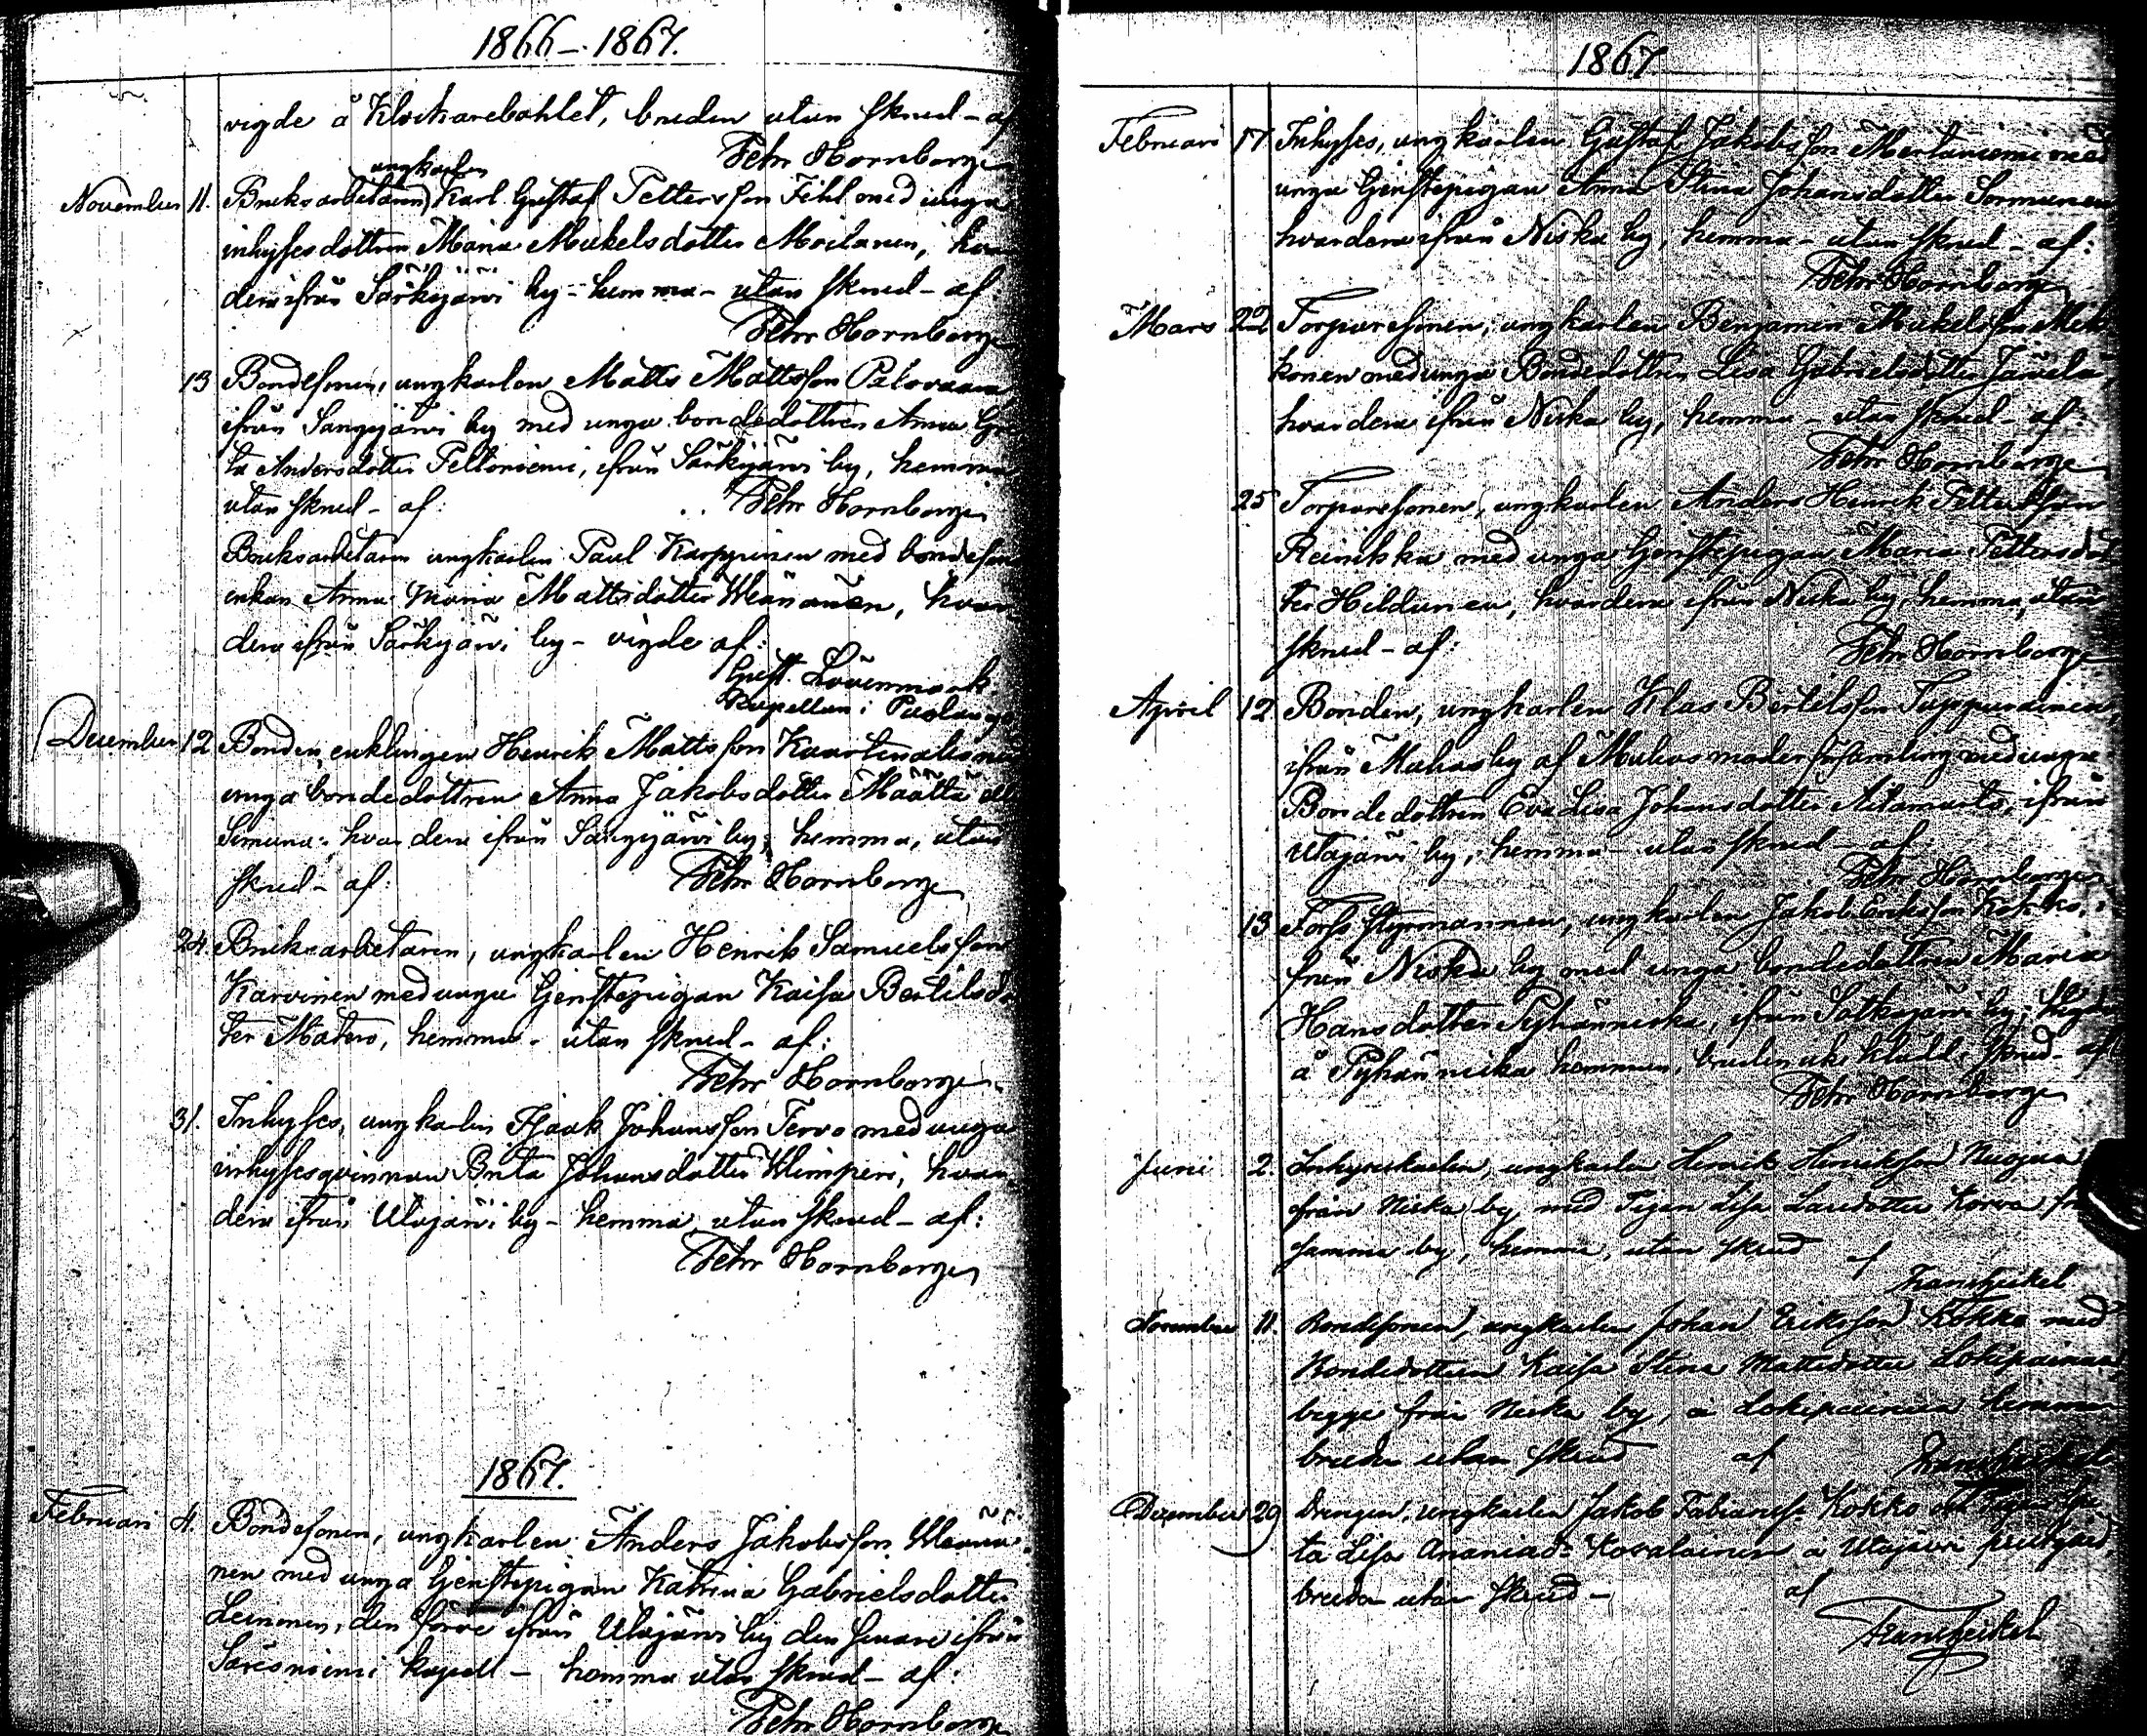 1866–1867.
vigde å Klockarebohlet, bruden utan skrud – af
Fehr Hornborge
ungkarlen
November 11. Bruksarbetaren Karl Gustaf Pettersson Fihl med unga
inhyses dottren Maria Mickelsdotter Moilanen, hvar
dera ifrån Särkijärvi by – hemma – utan skrud – af:
Fehr Hornborge
13 Bondesonen, ungkarlen Matts Mattsson Palovaara
ifrån Sangijärvi by med unga bondedottren Anna Gre
ta Andersdotter Peltoniemi, ifrån Särkijärvi by, hemma
utan skrud – af:
Fehr Hornborge
Bruksarbetaren ungkarlen Paul Karppinen med bondeson
enkan Anna Maria Mattsdotter Määnänen, hvar
dera ifrån Särkijärvi by – vigde af:
Gust. Lövenmark
Kapellan i Paldamo
December 12 Bonden, enklingen Henrik Mattsson Kaarlenaho med
unga bondedottren Anna Jakobsdotter Määttä ell
Simuna, hvardera ifrån Sangijärvi by, hemma, utan
skrud – af:
Fehr Hornborge
24. Bruksarbetaren, ungkarlen Henrik Samuelsson
Karvinen med unga Tjenstepigan Kaisa Bertilsdot
ter Matero, hemma – utan skrud – af:
Fehr Hornborge
31. Inhyses, ungkarlen Isaak Johansson Tervo med unga
inhysesqvinnan Brita Johansdotter Klimperi, hvar
dera ifrån Utajärvi by – hemma, utan skrud – af:
Fehr Hornborge
1867.
Februari 4. Bondesonen, ungkarlen Anders Jakobsson Määnä
nen med unga Tjenstepigan Katrina Gabrielsdotter
Leinonen, den förre ifrån Utajärvi by den senare ifrån
Säresniemi kapell – hemma utan skrud – af:
Fehr Hornborge
1867.
Februari 17 Inhyses, ungkarlen Gustaf Jakobsson Merlaniemi med
unga Tjenstepigan Anna Stina Johansdotter Sormunen
hvardera ifrån Niska by, hemma – utan skrud – af:
Fehr Hornborge
Mars 22 Torparesonen, ungkarlen Benjamin Mickelsson Mik
konen med unga Bondedottren Lisa Gabrielsdotter Järvelä,
hvardera ifrån Niska by, hemma – utan skrud – af:
Fehr Hornborge
25 Torparesonen, ungkarlen Anders Henrik Pettersson
Reinikka med unga Tjenstepigan Maria Pettersdot
ter Hildunen, hvardera ifrån Niska by, hemma, utan
skrud – af:
Fehr Hornborge
April 12 Bonden, ungkarlen Klas Bertelsson Tuppurainen
ifrån Muhos by af Muhos moderförsamling med unga
Bondedottren Eva Lisa Johansdotter Aitamurto, ifrån
Utajärvi by, hemma – utan skrud – af
Fehr Hornborge
13 Fors styrmannen, ungkarlen Jakob Eriksson Kokko, i
från Niska by med unga bondedottren Maria
Hansdotter Pyhänniska, ifrån Sotkajärvi by; vigde
å Pyhänniska hemman, bruden uti klädd skrud – af
Fehr Hornborge
Juni 2. Inhysekarlen, ungkarlen Henrik Henriksson Nuojua
från Niska by, med Pigan Lisa Larsdotter Korva fr
samma by, hemma, utan skrud
af
Frans Heikel
November 11. Bondesonen, ungkarlen Johan Eriksson Kokko med
Bondedottren Kaisa Stina Mattsdotter Lokipainen
begge från Niska by, å Lokipainen hemman
bruden utan skrud af Frans Heikel
December 29 Drengen, ungkarlen Jakob Fabianss. Kokko
ta Lisa Ananiasd. Kovalainen å Utajärvi prestgård,
bruden utan skrud – af
Frans Heikel